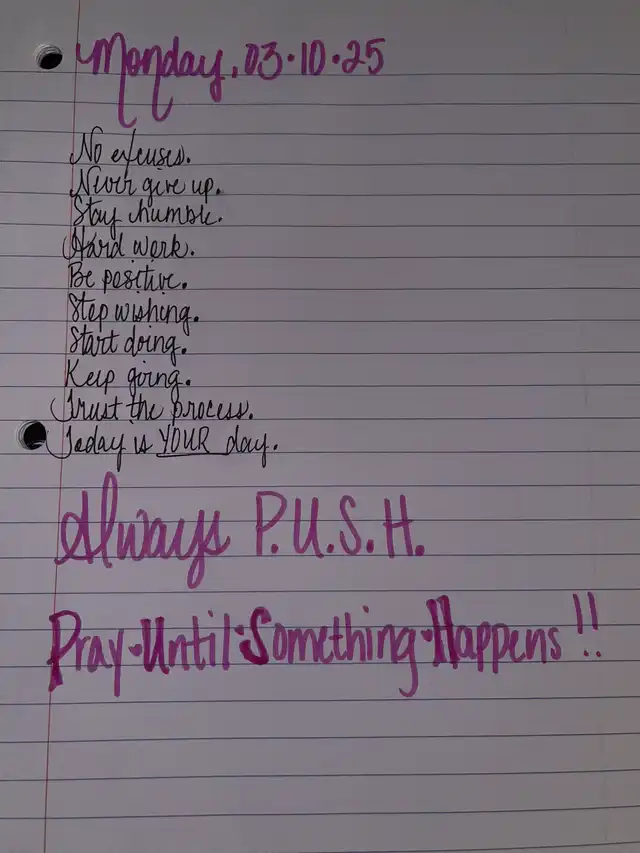 Monday, 03·10·25
No excuses.
Never give up.
Stay humble.
Hard work.
Be positive.
Stop wishing.
Start doing.
Keep going.
Trust the process.
Today is YOUR day.
Always P.U.S.H.
Pray·Until·Something·Happens!!